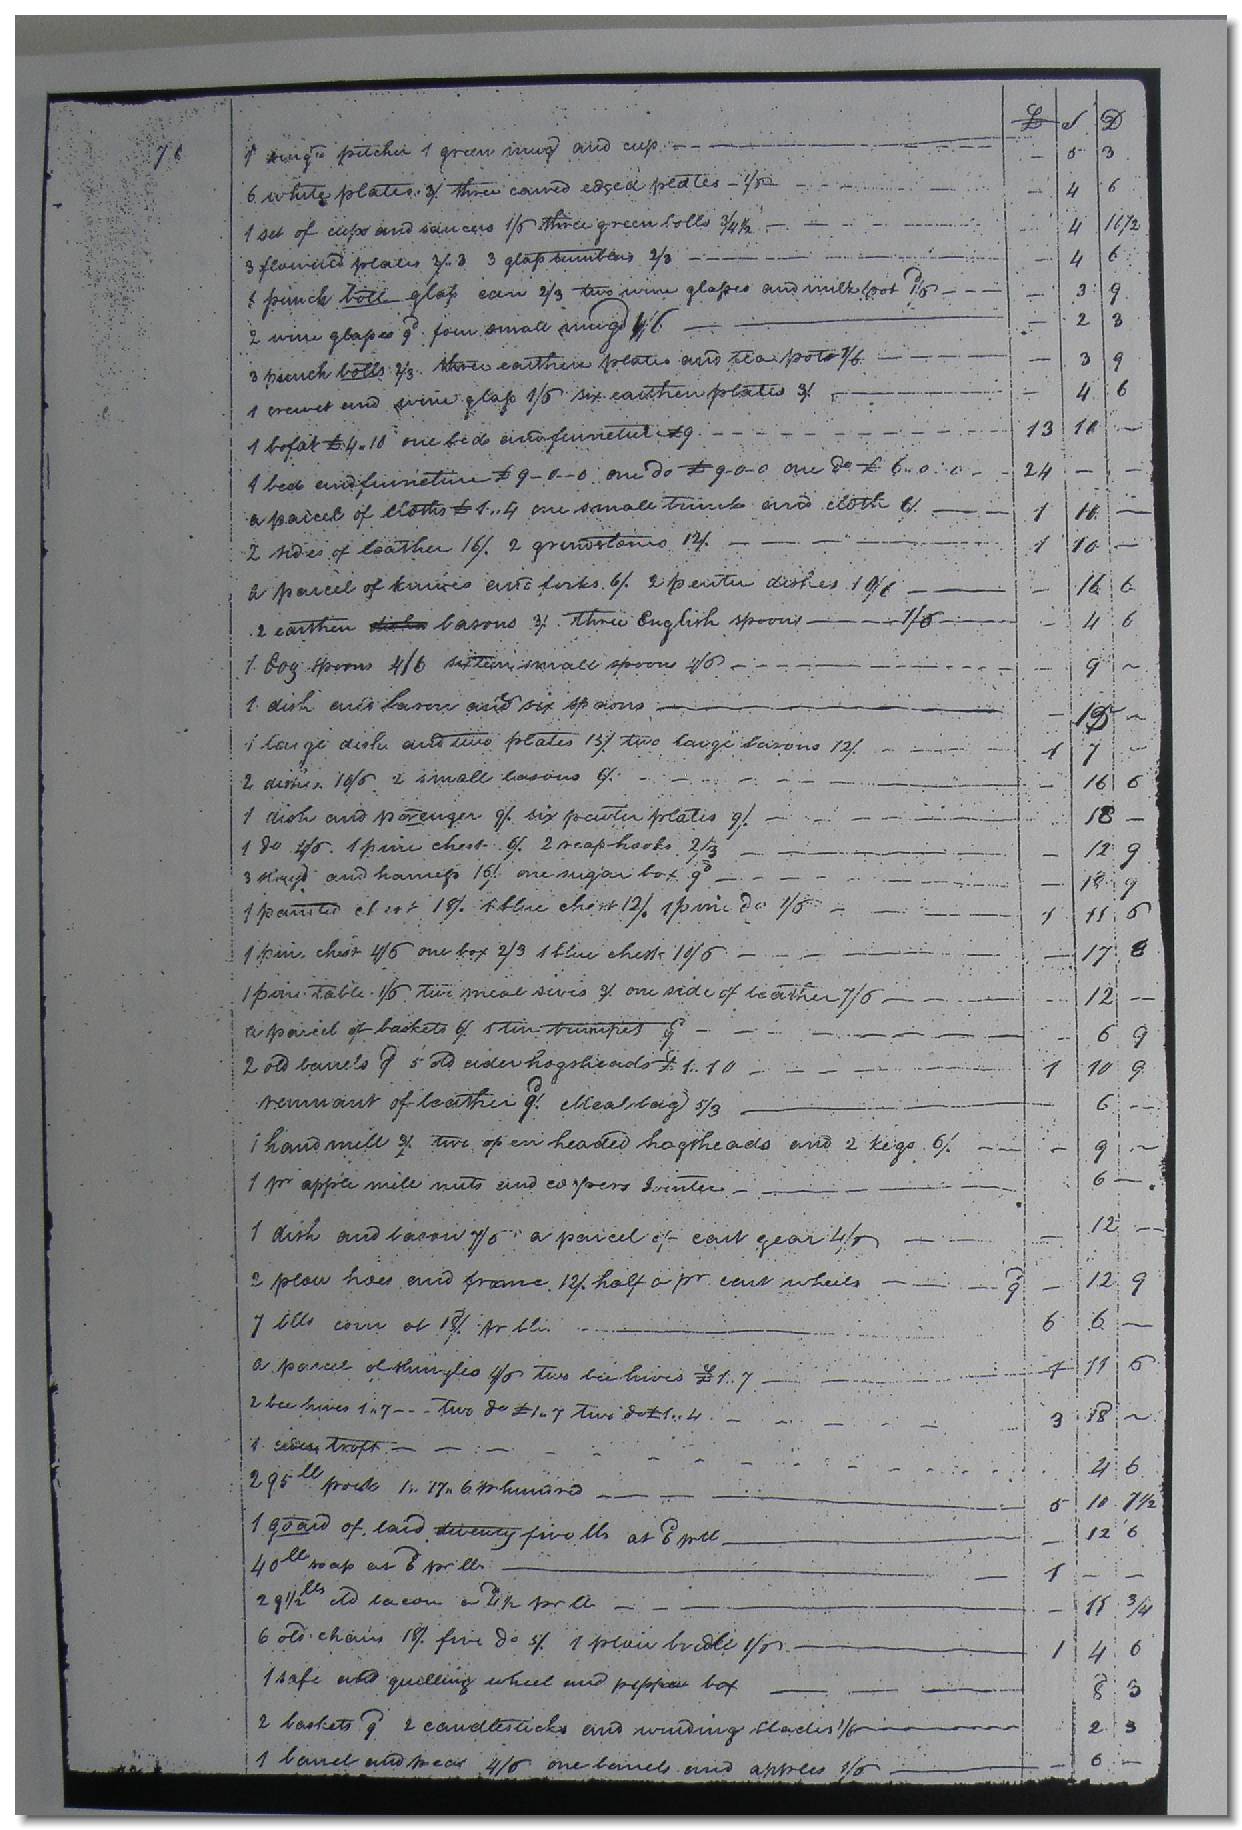 £ S D
76
1 pitcher 1 green mug and cup - 5 3
6 white plates 3/ three caived edged plates 1/6 - 4 6
1 set of cups and saucers 1/6 three green bolls 3/4½ - 4 10½
3 flowered plates 2/3 3 glass tumblers 2/3 - 4 6
1 punch boll glass can 2/3 two wine glasses and milk pot 1/6 - 3 9
2 wine glasses 9d four small mugs 1/6 - 2 3
3 punch bolls 2/3 three earthen plates and tea pots 1/6 - 3 9
1 crewet and wine glass 1/6 six earthen plates 3/ - 4 6
1 bofat £4..10 one bed and furneture £9 13 10 -
1 bed and furneture £9-0-0 one do £9-0-0 one do £6..0..0 24 - -
a parcel of cloths £1..4 one small trunk and cloth 6/ 1 10 -
2 sides of leather 16/ 2 grindstones 12/ 1 10 -
a parcel of knives and forks 6/ 2 peuter dishes 10/6 - 16 6
2 earthen basons 3/ three English spoons 1/6 - 4 6
1 Dog spoons 4/6 sixteen small spoons 4/6 - 9 -
1 dish and bason and six spoons -
1 large dish and two plates 15/ two large basons 12/ 1 7 -
2 dishes 10/6 2 small basons 6/ - 16 6
1 dish and porenger 9/ six pewter plates 9/ 18 -
1 do 4/6 1 pine chest 6/ 2 reaphooks 2/3 - 12 9
3 and harness 16/ one sugar box 9d - 18 9
1 painted chest 18/ 1 blue chest 12/ 1 pine do 1/6 1 11 6
1 pine chest 4/6 one box 2/3 1 blue chest 10/6 - 17 8
1 pine table 1/6 two meal sives 3/ one side of leather 7/6 - 12 -
a parcel of baskets 6/ 1 tin trumpet 9d 6 9
2 old barrels 9d 5 old cider hogsheads £1..10 1 10 9
remnant of leather 9d. Meal bag 5/3 6 -
1 hand mill 3/ two open headed hogsheads and 2 kegs 6/ - 9 -
1 pr apple mill nuts and coopers Jointer 6 -
1 dish and bason 7/6 a parcel of cart gear 4/6 - 12 -
2 plow hoes and frame 12/ half a pr cart wheels 9d - 12 9
7 blls corn at 18/ pr bll 6 6 -
a parcel of shingles 4/6 two bee hives £1..7 1 11 6
2 bee hives 1..7 - two do £1..7 two do £1..4 3 18 -
1 troft 4 6
295 lb pork 1..17..6 pr hundred 5 10 7½
1 goard of lard twenty five lbs at 6d pr lb - 12 6
40 lb soap at 6d pr lb 1 - -
29½ lbs old bacon a 4½ pr lb - 11 3/4
6 old chairs 18/ five do 5/ 1 plow bridle 1/6 1 4 6
1 safe and quelling wheel and box 8 3
2 baskets 9d 2 candlesticks and winding blades 1/6 2 3
1 barrel and peas 4/6 one barrels and apples 1/6 - 6 -